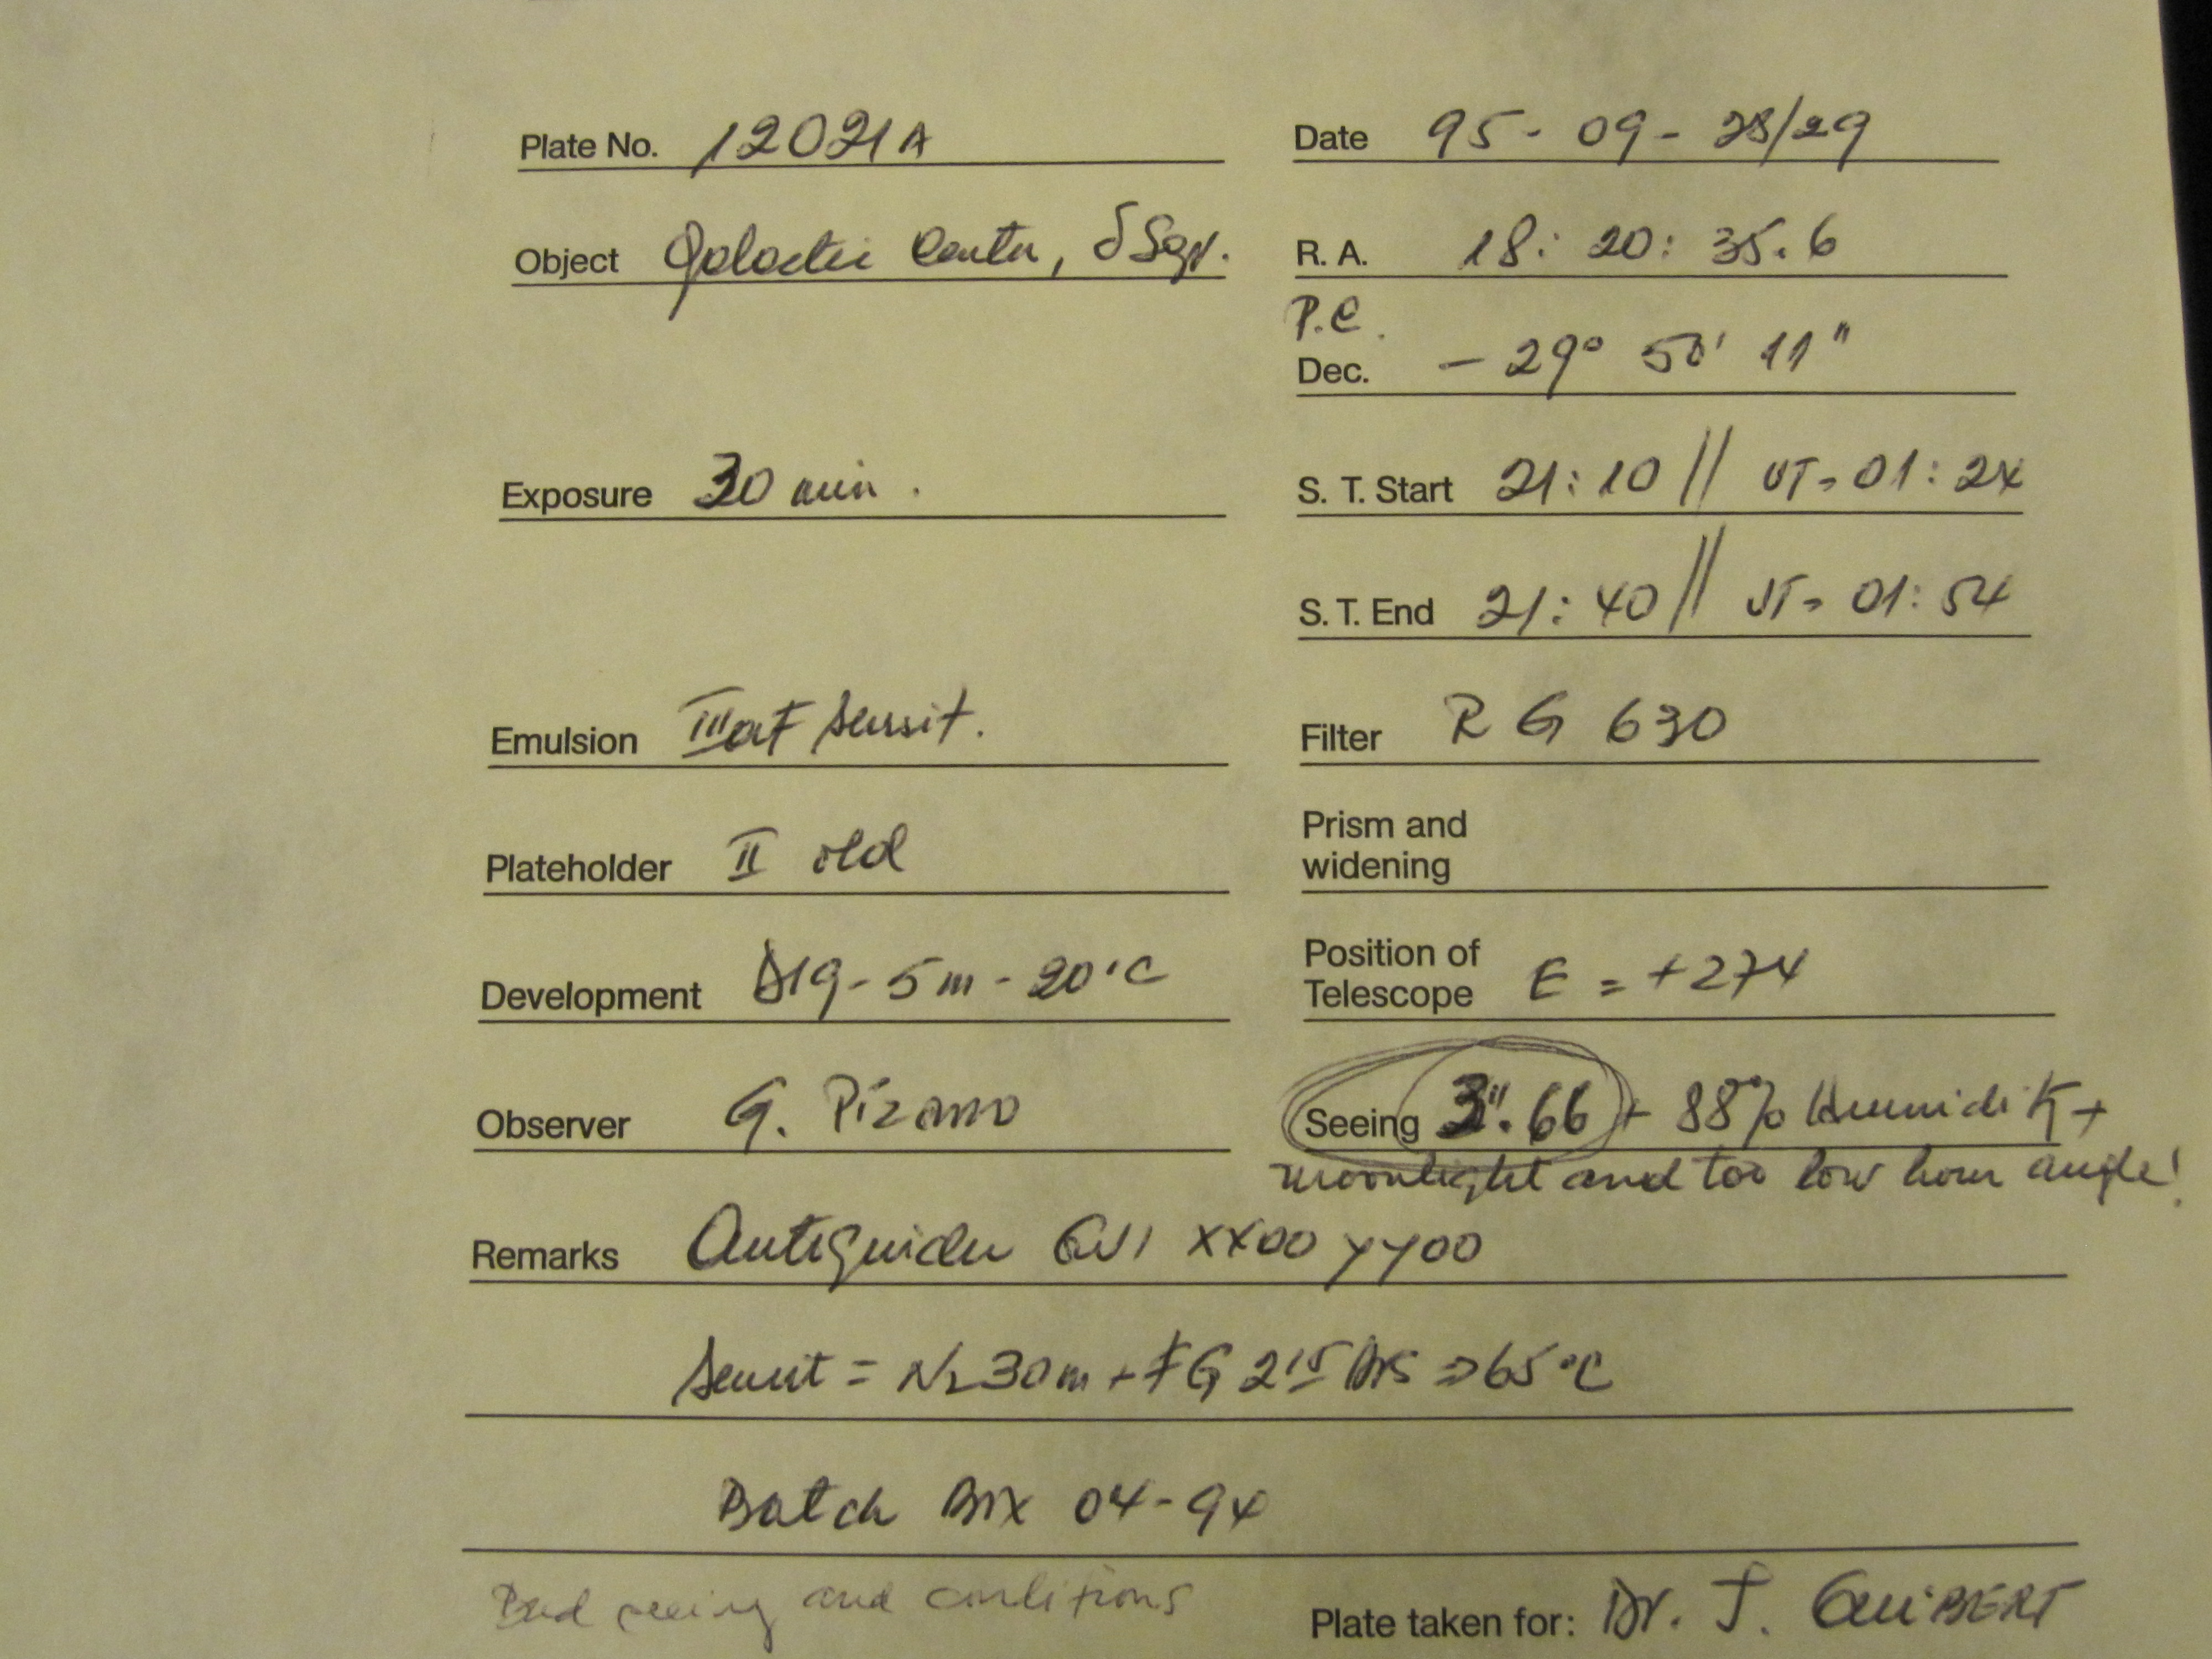 Plate No. 12021A
Date 95-09-28/29
Object Galactic Center, δ Sgr.
R. A. 18: 20: 35.6
P.C.
Dec. -29° 50' 11"
Exposure 30 min.
S. T. Start 21:10 // UT= 01:24
S. T. End 21:40 // UT= 01:54
Emulsion IIIaF sensit.
Filter RG 630
Plateholder II old
Prism and
widening
Development D19-5m-20°C
Position of
Telescope E = +274
Observer G. Pizarro
Seeing 3".66 + 88% Humidity +
moonlight and too low hour angle!
Remarks Autoguider XX00 YY00
Sensit = N2 30m + FG 2 15 hrs => 65°C
Batch 04-94
Bad seeing and conditions
Plate taken for: Dr. J. GUIBERT